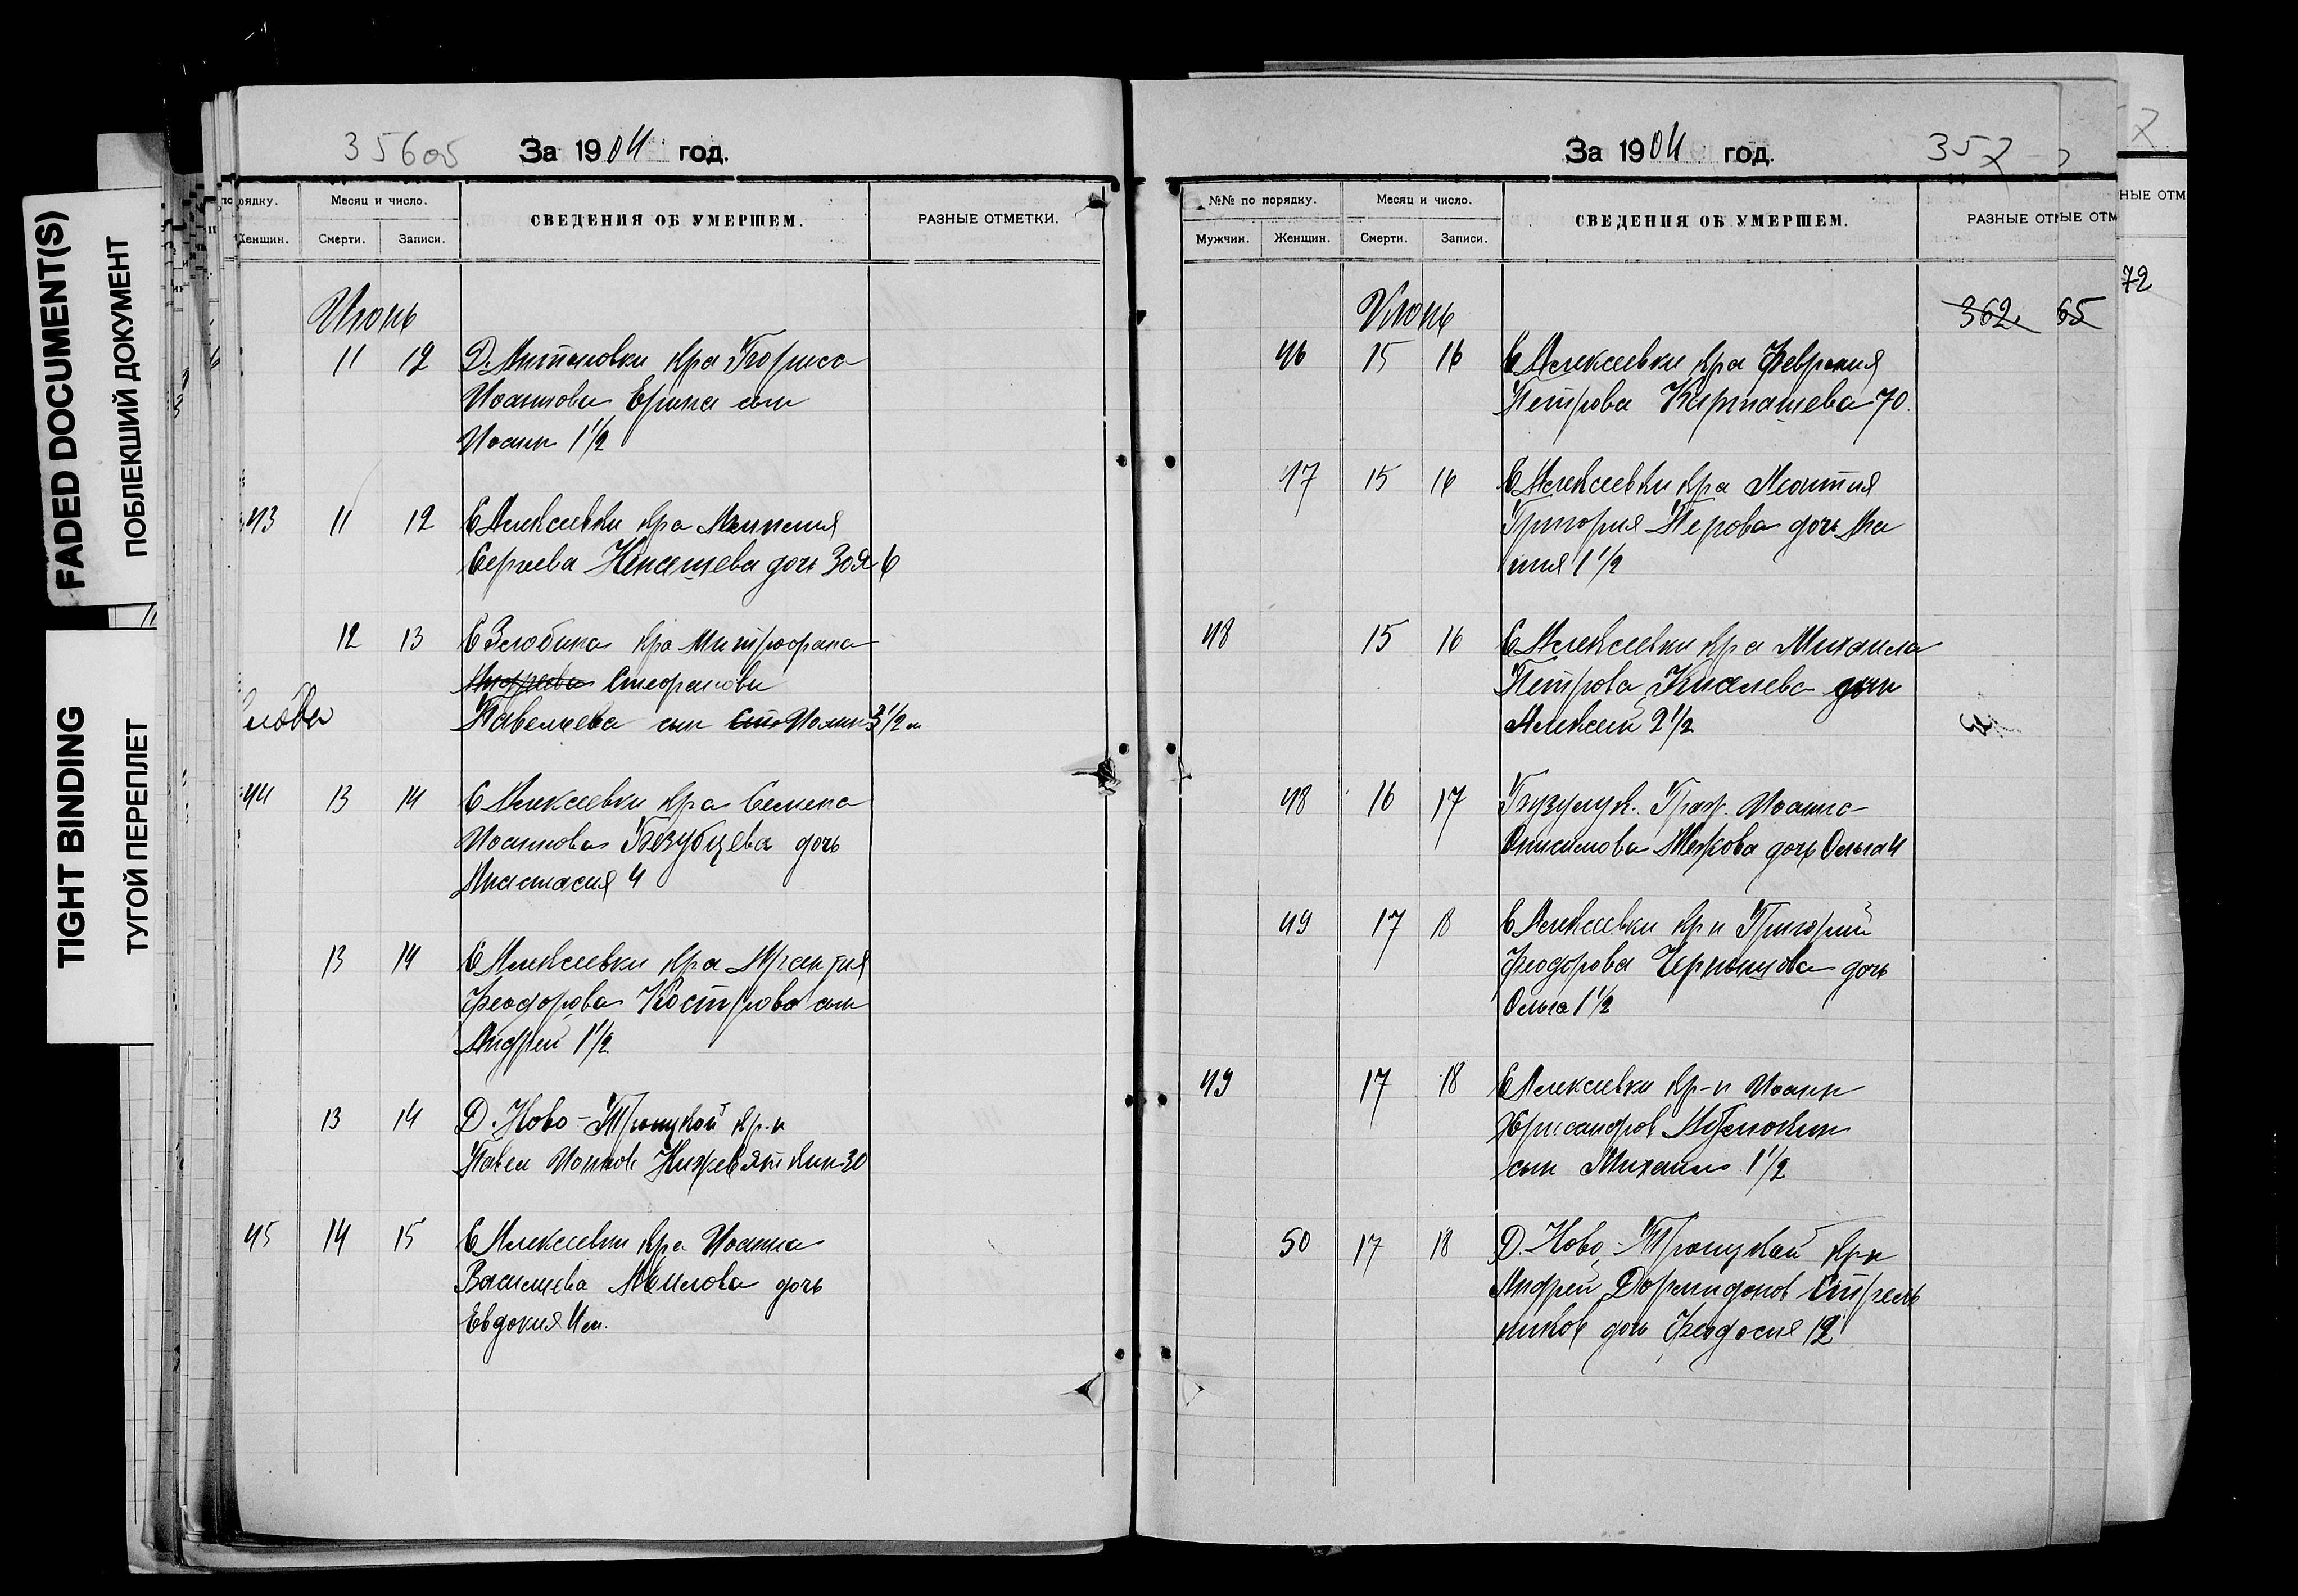 FADED DOCUMENT(S)
ПОБЛЕКШИЙ ДОКУМЕНТ
TIGHT BINDING
ТУГОЙ ПЕРЕПЛЕТ
35605
За 1904 год.
по рядку.
Месяц и число.
СВЕДЕНИЯ ОБ УМЕРШЕМ.
РАЗНЫЕ ОТМЕТКИ.
Женщин.
Смерти.
Записи.
Июнь
11 12 Д. Антоновки кр-а Бориса
Иоаннова Ерина сын
Иоанн 1 1/2
43 11 12 С Алексеевки кр-а
Сергеева Ненашева дочь Зоя 6
12 13 С Злобина кр-а Митрофана
Стефанова
Павельева сын Иоанн 3 1/2 м
44 13 14 С Алексеевки кр-а Семена
Иоаннова Беззубцева дочь
Анастасия 4
13 14 С Алексеевки кр-а
Феодорова Кострова сын
Андрей 1 1/2
13 14 Д. Ново-Троицкой кр-н
Павел Нижевяткин 30
45 14 15 С Алексеевки кр-а Иоанна
Васильева дочь
Евдокия 4 м.
За 1904 год.
352
№№ по порядку.
Месяц и число.
СВЕДЕНИЯ ОБ УМЕРШЕМ.
РАЗНЫЕ ОТ
ЫЕ ОТМ
НЫЕ ОТМ
Мужчин.
Женщин.
Смерти.
Записи.
72
Июнь
362 65
46 15 16 С Алексеевки кр-а Феврония
Петрова Карташева 70.
47 15 16 С Алексеевки кр-а Леонтия
Григория Перова дочь Ма
рия 1 1/2
48 15 16 С Алексеевки кр-а Михаила
Петрова Киселева сын
Алексей 2 1/2
48 16 17 Бузулук. Граж. Иоанна
Онисимова Межова дочь Ольга 4
49 17 18 С Алексеевки кр-н Григорий
Феодорова Чернышова дочь
Ольга 1 1/2
49 17 18 С Алексеевки кр-н Иоанн
Хрисанфов
сын Михаил 1 1/2
50 17 18 Д. Ново-Троицкой кр-н
Андрей Дормидонов Стрель
ников дочь Феодосия 12